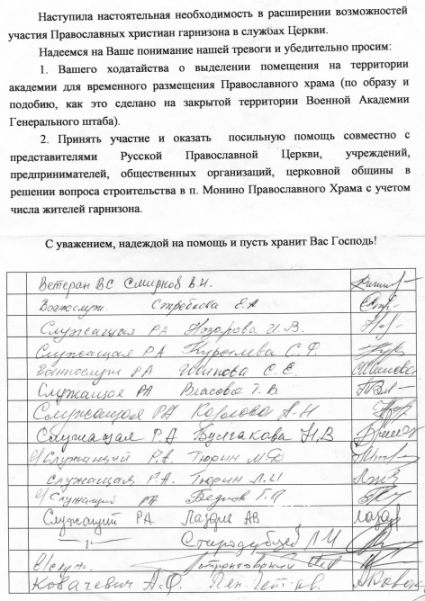 Наступила настоятельная необходимость в расширении возможностей
участия Православных христиан гарнизона в службах Церкви.
Надеемся на Ваше понимание нашей тревоги и убедительно просим:
1. Вашего ходатайства о выделении помещения на территории
академии для временного размещения Православного храма (по образу и
подобию, как это сделано на закрытой территории Военной Академии
Генерального штаба).
2. Принять участие и оказать посильную помощь совместно с
представителями Русской Православной Церкви, учреждений,
предпринимателей, общественных организаций, церковной общины в
решении вопроса строительства в п. Монино Православного Храма с учетом
числа жителей гарнизона.
С уважением, надеждой на помощь и пусть хранит Вас Господь!
Ветеран ВС Смирнов В.И.
Военнослуж. Е.А
Служащая РА Назарова И.В.
Служащая РА С.Ф.
Военнослуж РА С.Е.
Служащая РА Власова Т.В.
Служащая РА Козлова А.Н
Служащая РА Булгакова Н.В
Служащий РА Тюрин М.Ф
Служащая РА. Тюрин Л.И
Служащий РА
Служащий РА Лазарев АВ Лазар
Стародубцев Л.И
В/служ.
Ковачевич А.Ф.